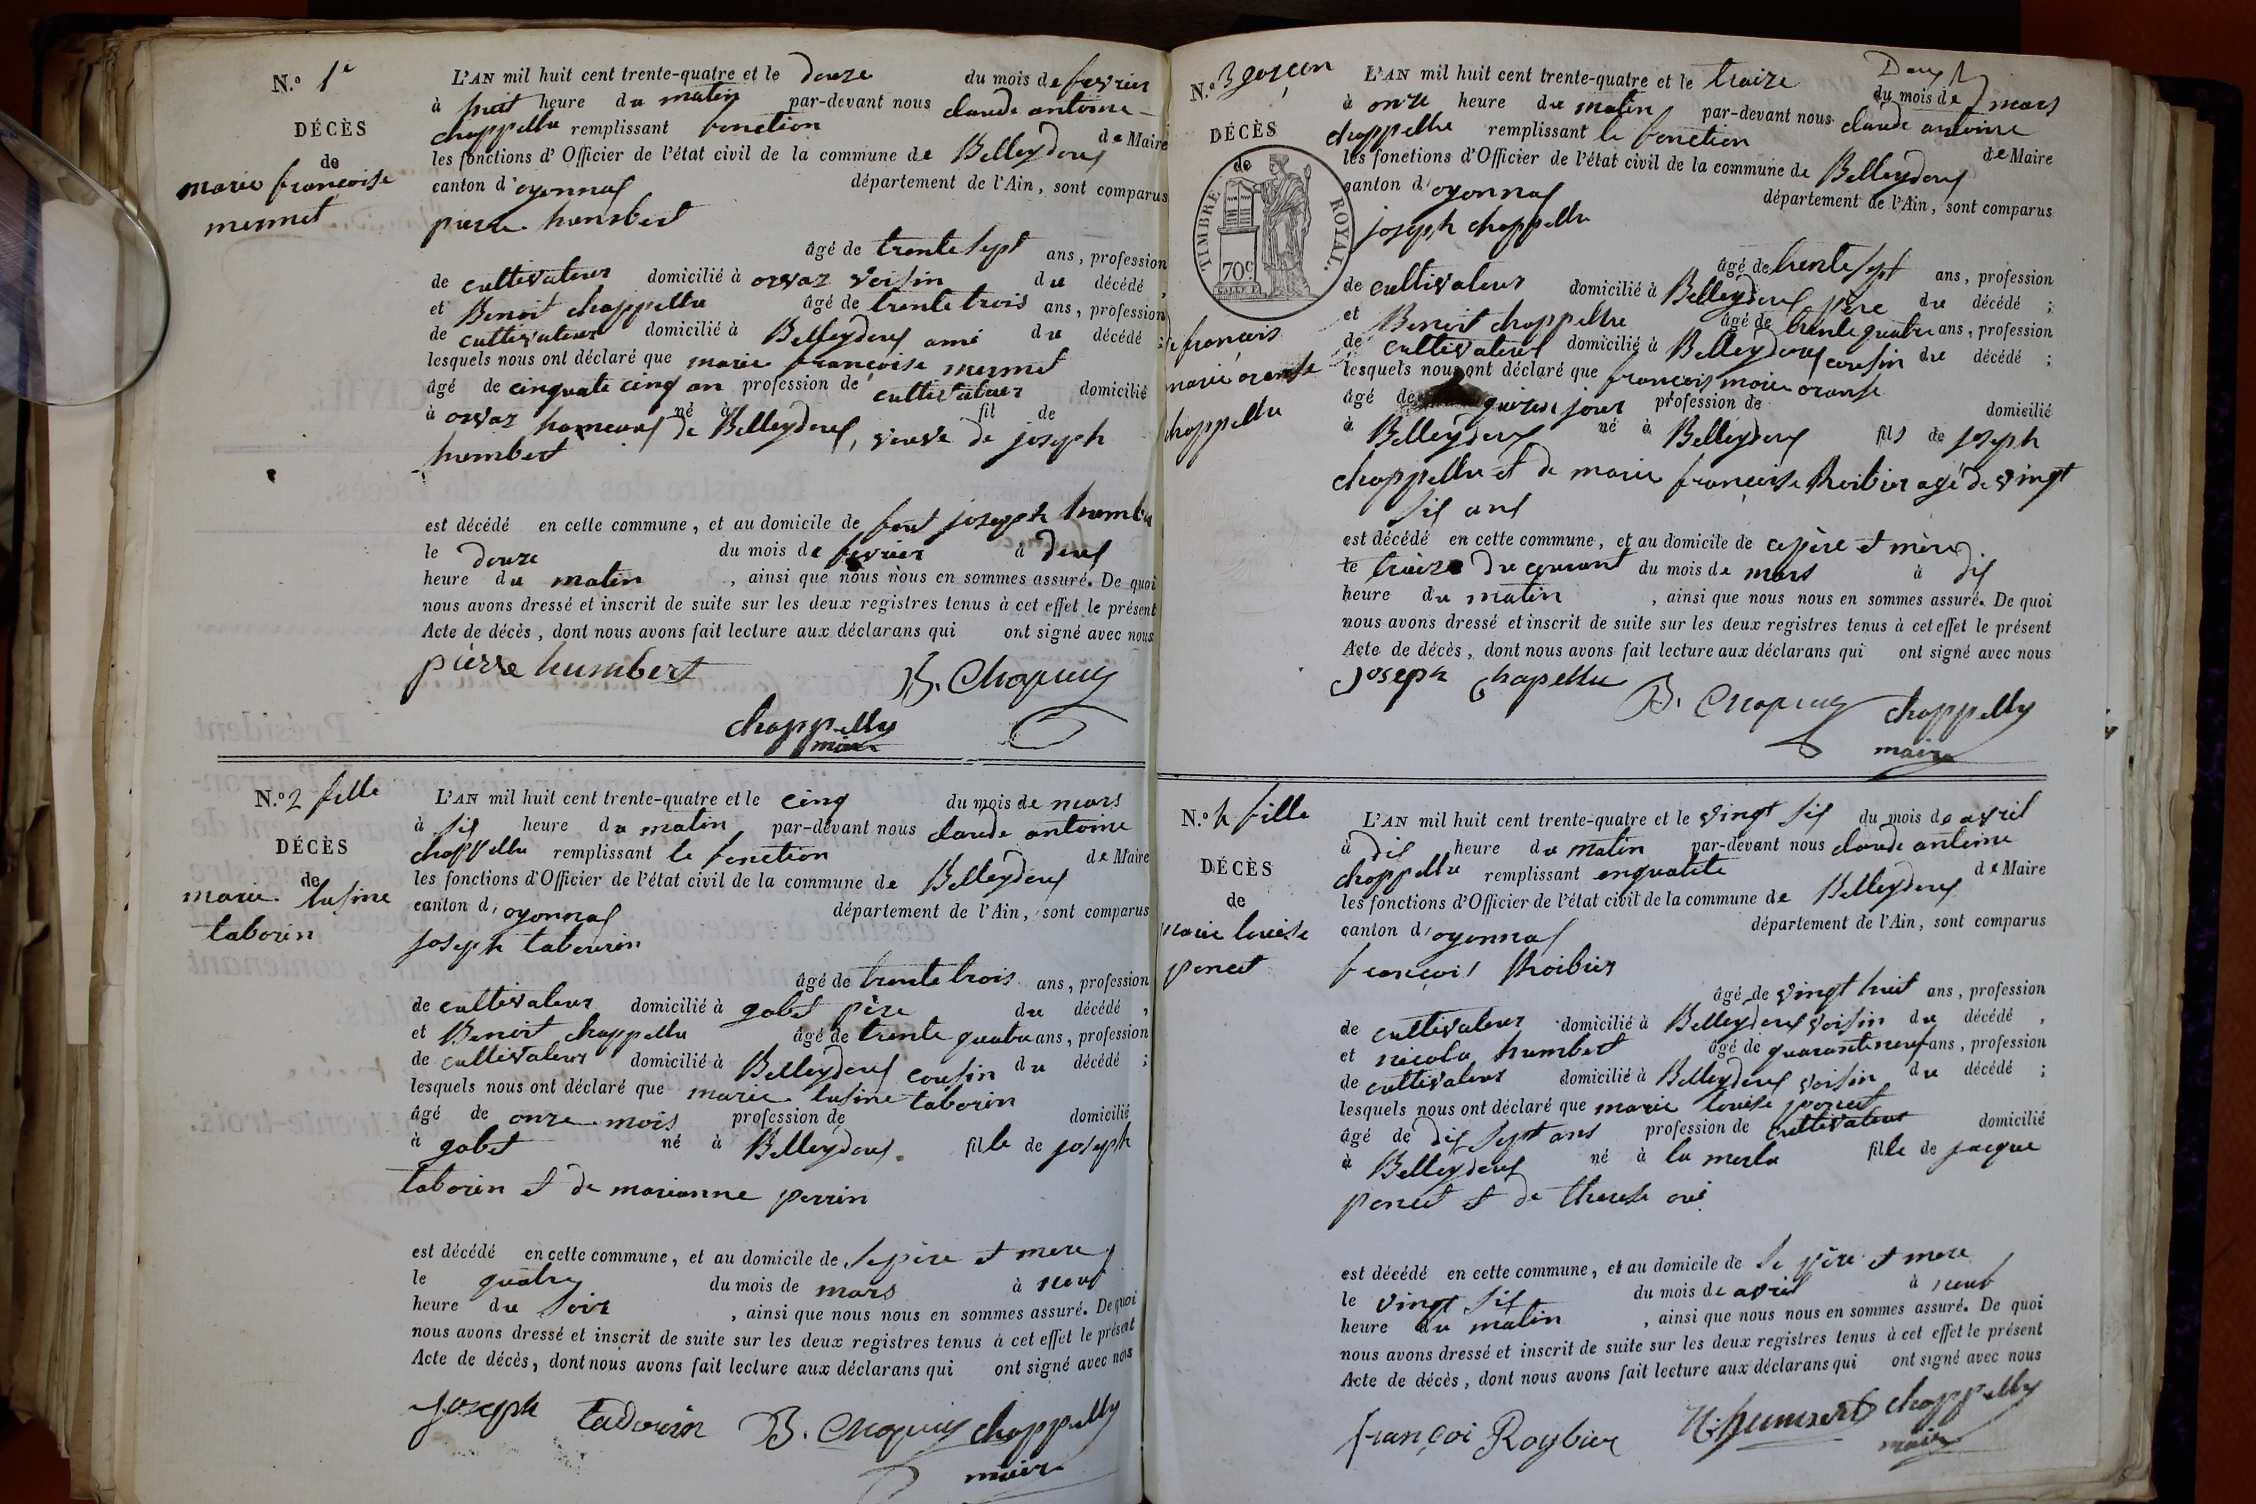 N.º 1e
DÉCÈS
de
marie francoise
mermet
L'AN mil huit cent trente-quatre et le douze du mois de fevrier
à huit heure du matin par-devant nous claude antoine
chappellu remplissant fonction de Maire
les fonctions d'Officier de l'état civil de la commune de Belleydoux
canton d'oyonnax département de l'Ain, sont comparus
pierre humbert
âgé de trente sept ans, profession
de cultivateur domicilié à orvaz voisin du décédé,
et Benoit chappellu âgé de trente trois ans, profession
de cultivateur domicilié à Belleydoux ami du décédé ;
lesquels nous ont déclaré que marie françoise mermet
âgé de cinquate cinq an profession de cultivateur domicilié
à orvaz hameaux né à de Belleydoux, fil de veuve de joseph
humbert
est décédé en cette commune, et au domicile de feut joseph humber
le douze du mois de fevrier à deux
heure du matin, ainsi que nous nous en sommes assuré. De quoi
nous avons dressé et inscrit de suite sur les deux registres tenus à cet effet le présent
Acte de décès, dont nous avons fait lecture aux déclarans qui ont signé avec nous
pierre humbert B. Chapuis
chappelluy
maire
N.º 2 fille
DÉCÈS
de
marie lusine
taborin
L'AN mil huit cent trente-quatre et le cinq du mois de mars
à six heure du matin par-devant nous claude antoine
chappellu remplissant le fonction de Maire
les fonctions d'Officier de l'état civil de la commune de Belleydoux
canton d'oyonnax département de l'Ain, sont comparus
joseph tabourin
âgé de trente trois ans, profession
de cultivateur domicilié à gobet père du décédé,
et Benoit chappellu âgé de trente quatre ans, profession
de cultivateur domicilié à Belleydoux cousin du décédé ;
lesquels nous ont déclaré que marie lusine taborin
âgé de onze mois profession de domicilié
à gobet né à Belleydoux. fille de joseph
taborin et de marianne perrin
est décédé en cette commune, et au domicile de se père et mere
le quatre du mois de mars à neuf
heure du soir, ainsi que nous nous en sommes assuré. De quoi
nous avons dressé et inscrit de suite sur les deux registres tenus à cet effet le présent
Acte de décès, dont nous avons fait lecture aux déclarans qui ont signé avec nous
joseph tabourin B. Chapuis chappelluy
maire
N.º 3 garçon
DÉCÈS
de
TIMBRE ROYAL.
70c
de françois
marie oranse
chappellu
L'AN mil huit cent trente-quatre et le traize du mois de mars
à onze heure du matin par-devant nous claude antoine
chappellu remplissant le fonction de Maire
les fonctions d'Officier de l'état civil de la commune de Belleydoux
canton d'oyonnax département de l'Ain, sont comparus
joseph chappellu
âgé de trente sept ans, profession
de cultivateur domicilié à Belleydoux père du décédé ;
et Benoit chappellu âgé de trente quatre ans, profession
de cultivateur domicilié à Belleydoux cousin du décédé ;
lesquels nous ont déclaré que françois marie oranse
âgé de quinze jour profession de domicilié
à Belleydoux né à Belleydoux fils de joseph
chappellu et de marie françoise Roibier agé de vingt
six ans
est décédé en cette commune, et au domicile de ce père et mère
le traize du courant du mois de mars à dix
heure du matin, ainsi que nous nous en sommes assuré. De quoi
nous avons dressé et inscrit de suite sur les deux registres tenus à cet effet le présent
Acte de décès, dont nous avons fait lecture aux déclarans qui ont signé avec nous
joseph chapellu B. Chapuis chappelluy
maire
N.º 4 fille
DÉCÈS
de
marie louise
poncet
L'AN mil huit cent trente-quatre et le vingt six du mois de avril
à dix heure du matin par-devant nous claude antoine
chappellu remplissant enqualité de Maire
les fonctions d'Officier de l'état civil de la commune de Belleydoux
canton d'oyonnax département de l'Ain, sont comparus
françois Roibier
âgé de vingt huit ans, profession
de cultivateur domicilié à Belleydoux voisin du décédé,
et nicola humbert âgé de quarant neuf ans, profession
de cultivateur domicilié à Belleydoux voisin du décédé ;
lesquels nous ont déclaré que marie louise poncet
âgé de dix sept ans profession de cultivateur domicilié
à Belleydoux né à la merla fille de jacque
poncet et de therese
est décédé en cette commune, et au domicile de se père et mere
le vingt six du mois de avril à neuf
heure du matin, ainsi que nous nous en sommes assuré. De quoi
nous avons dressé et inscrit de suite sur les deux registres tenus à cet effet le présent
Acte de décès, dont nous avons fait lecture aux déclarans qui ont signé avec nous
françoi Roybier N. humbert chappelluy
maire